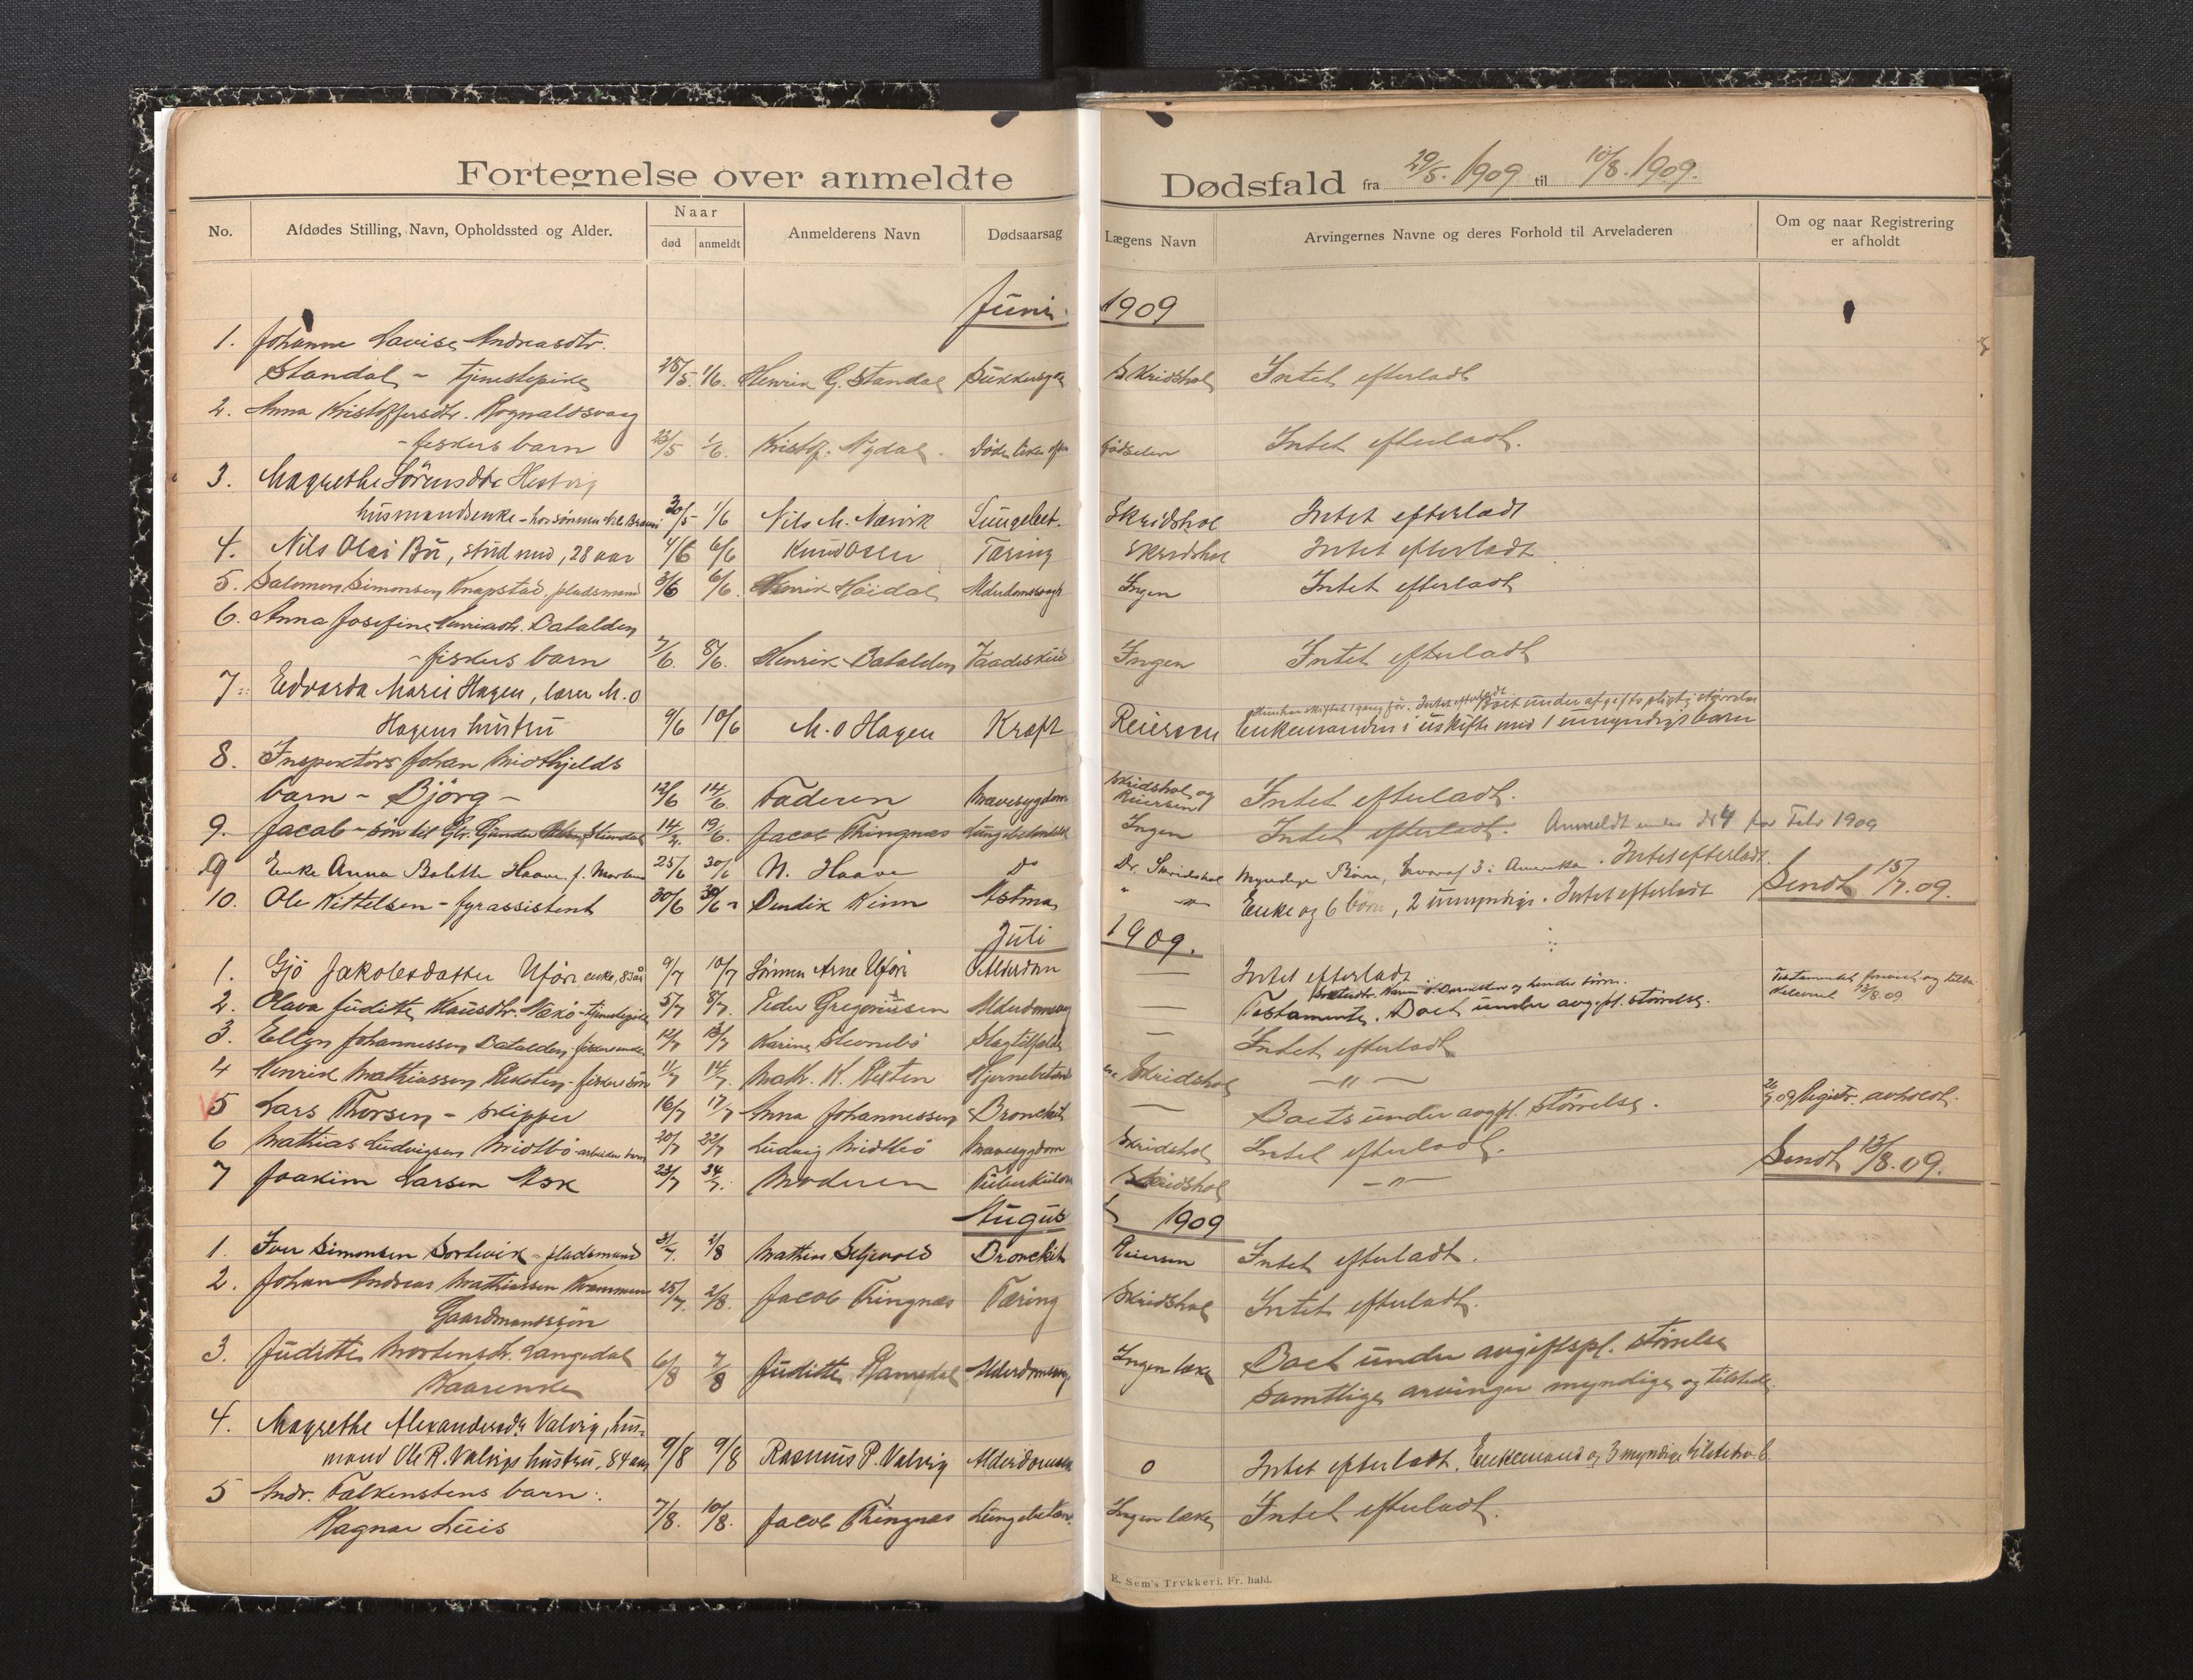 Fortegnelse over anmeldte Dødsfald fra 29/5. 1909 til 10/8. 1909.
No. Afdødes Stilling, Navn, Opholdssted og Alder. Naar død anmeldt Anmelderens Navn Dødsaarsag Lægens Navn Arvingernes Navne og deres Forhold til Arveladeren Om og naar Registrering er afholdt
Juni 1909
1. Johanne Lovise Andreasdtr.
Standal - tjenestepike 28/5. 1/6. Henrik G. Standal Sukkersyke Skridshol Intet efterladt
2. Anna Kristoffersdtr. Rognaldsvaag
- fiskers barn 23/5 1/6. Kristof. Nydal. Døde like efter fødselen Intet efterladt.
3. Magrethe Sørensdtr
husmandsenke - hos sønnen 30/5 1/6 Nils M. Nærvik Lungebet. Skridshol Intet efterladt
4. Nils Olai Bu, stud med, 28 aar 4/6 6/6 Knud Osen Tæring Skridshol Intet efterladt
5. Salomon Simonsen Knapstad, pladsmand 3/6 6/6. Henrik Høidal Alderdomssvagh Ingen Intet efterladt
6. Anna Josefine Henriksdtr. Batalden
- fiskers barn 7/6. 8/6. Henrik Batalden Ingen Intet efterladt
7. Edvarda Marie Hagen, lærer M. O
Hagens hustru 9/6 10/6 M. O Hagen Kræft Reiersen Enkemanden i uskifte med 1 umyndigt barn
8. Inspektør Johan Midthjelds
barn - Bjørg - 12/6 14/6. Faderen Mavesygdom Skridshol og Reiersen Intet efterladt.
9. Jacob - søn til 14/2. 19/6. Jacob Tringnæs Ingen Intet efterladt. Anmeldt under No 4 for Febr 1909
9 Enke Anna Bolette Haave f. 25/6 30/6 N. Haave Do Dr. Skridshol Myndige Børn, hvoraf 3 i Amerika. Intet efterladt.
10. Ole Kittelsen - fyrassistent 30/6 30/6 Dendik Kinn Astma " Enke og 6 børn, 2 umyndige. Intet efterladt Sendt 15/7.09.
Juli 1909.
1. Gjø Jakobsdatter Uføre enke, 83 aar 9/7 10/7 Sønnen Arne Uføre Alderdom — Intet efterladt
2. Olava Juditte 5/7 8/7. Peder Gregoriussen — Testamente. Boet under avgpl. størrelse.
3. Ellen Johannessen Batalden 12/7 13/7 Karine Steinbø Slagtilfælde — Intet efterladt
4 Henrik Mathiassen 11/7 14/7. Math. K. Skridshol — " —
5 Lars Thorsen - skipper 16/7 17/7 Anna Johannessen Bronchit — Boets under avgpl. størrelse. Registr. avholdt.
6 Mathias Ludvigsen Midtbø - arbeider barn 20/7 22/7 Ludvig Midtbø Mavesygdom Skridshol Intet efterladt. Sendt 13/8.09.
7 Joakim Larsen Ask 23/7 24/7. Moderen Tuberkulose Skridshol — " —
August 1909
1. Iver Simonsen Sørtevik - pladsmand 31/7. 2/8 Mathias Seljevold Bronchit Reiersen Intet efterladt.
2. Johan Andreas Mathiassen Krammen 25/7. 2/8. Jacob Tringnæs Tæring Skridshol Intet efterladt.
Gaardmandssøn
3. Juditte Mortensdtr. Langedal 6/8 7/8 Juditte Ramsdal Ingen læke Boet under avgiftspl. størrelse
Kaarenke Samtlige arvinger myndige og tilstede
4. Magrethe Alexandersdtr Valvig, hus-
mand Ole R. Valvigs hustru, 84 aar 9/8 9/8 Rasmus P. Valvig Alderdom 0 Intet efterladt. Enkemand og 3 myndige
5 Andr. Falkenstens barn:
Ragnar Luis 7/8. 10/8. Jacob Tringnæs Lungebetæn. Ingen læke Intet efterladt.
E. Sem's Trykkeri. Fr. hald.